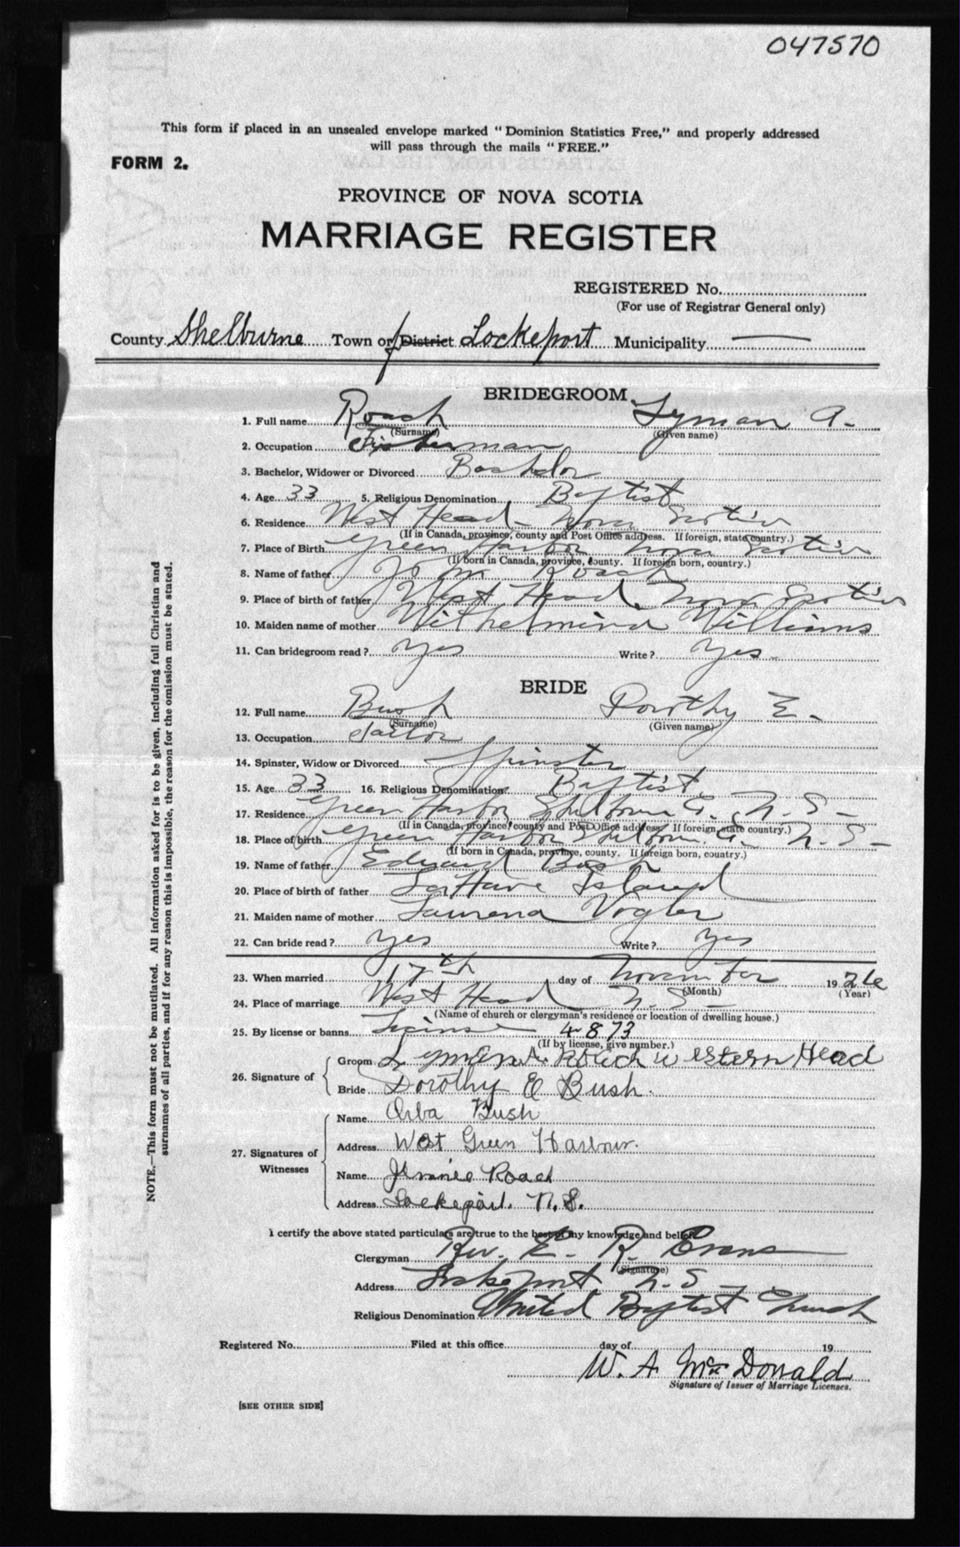 047570
This form if placed in an unsealed envelope marked "Dominion Statistics Free," and properly addressed
will pass through the mails "FREE."
FORM 2.
PROVINCE OF NOVA SCOTIA
MARRIAGE REGISTER
REGISTERED No.
(For use of Registrar General only)
County Shelburne Town or District Lockeport Municipality —
BRIDEGROOM
1. Full name Roach Lyman A.
(Surname) (Given name)
2. Occupation Fisherman
3. Bachelor, Widower or Divorced Bachelor
4. Age 33 5. Religious Denomination Baptist
6. Residence West Head - Nova Scotia
(If in Canada, province, county and Post Office address. If foreign, state country.)
7. Place of Birth Green Harbor Nova Scotia
(If born in Canada, province, county. If foreign born, country.)
8. Name of father John Roach
9. Place of birth of father West Head, Nova Scotia
10. Maiden name of mother Wilhelmina Williams
11. Can bridegroom read? Yes Write? Yes
BRIDE
12. Full name Bush Dorothy E.
(Surname) (Given name)
13. Occupation Tailor
14. Spinster, Widow or Divorced Spinster
15. Age 33 16. Religious Denomination Baptist
17. Residence Green Harbor Shelburne Co. N.S.
(If in Canada, province, county and Post Office address. If foreign, state country.)
18. Place of birth Green Harbor Shelburne Co. N.S.
(If born in Canada, province, county. If foreign born, country.)
19. Name of father Edward Bush
20. Place of birth of father LaHave Island
21. Maiden name of mother Laurena Vogler
22. Can bride read? Yes Write? Yes
23. When married 17th day of November 1926
(Month) (Year)
24. Place of marriage West Head N.S.
(Name of church or clergyman's residence or location of dwelling house.)
25. By license or banns License 4873
(If by license, give number.)
26. Signature of
Groom Lyman A Roach western Head
Bride Dorothy E Bush.
27. Signatures of Witnesses
Name Orba Bush
Address West Green Harbour.
Name Jennie Roach
Address Lockeport. N.S.
I certify the above stated particulars are true to the best of my knowledge and belief.
Clergyman Rev. E. R. Evans
(Signature)
Address Lockeport N.S.
Religious Denomination United Baptist Church
Registered No. Filed at this office day of 19
W. A. McDonald
Signature of Issuer of Marriage Licenses.
[SEE OTHER SIDE]
NOTE.—This form must not be mutilated. All information asked for is to be given, including full Christian and
surnames of all parties, and if for any reason this is impossible, the reason for the omission must be stated.